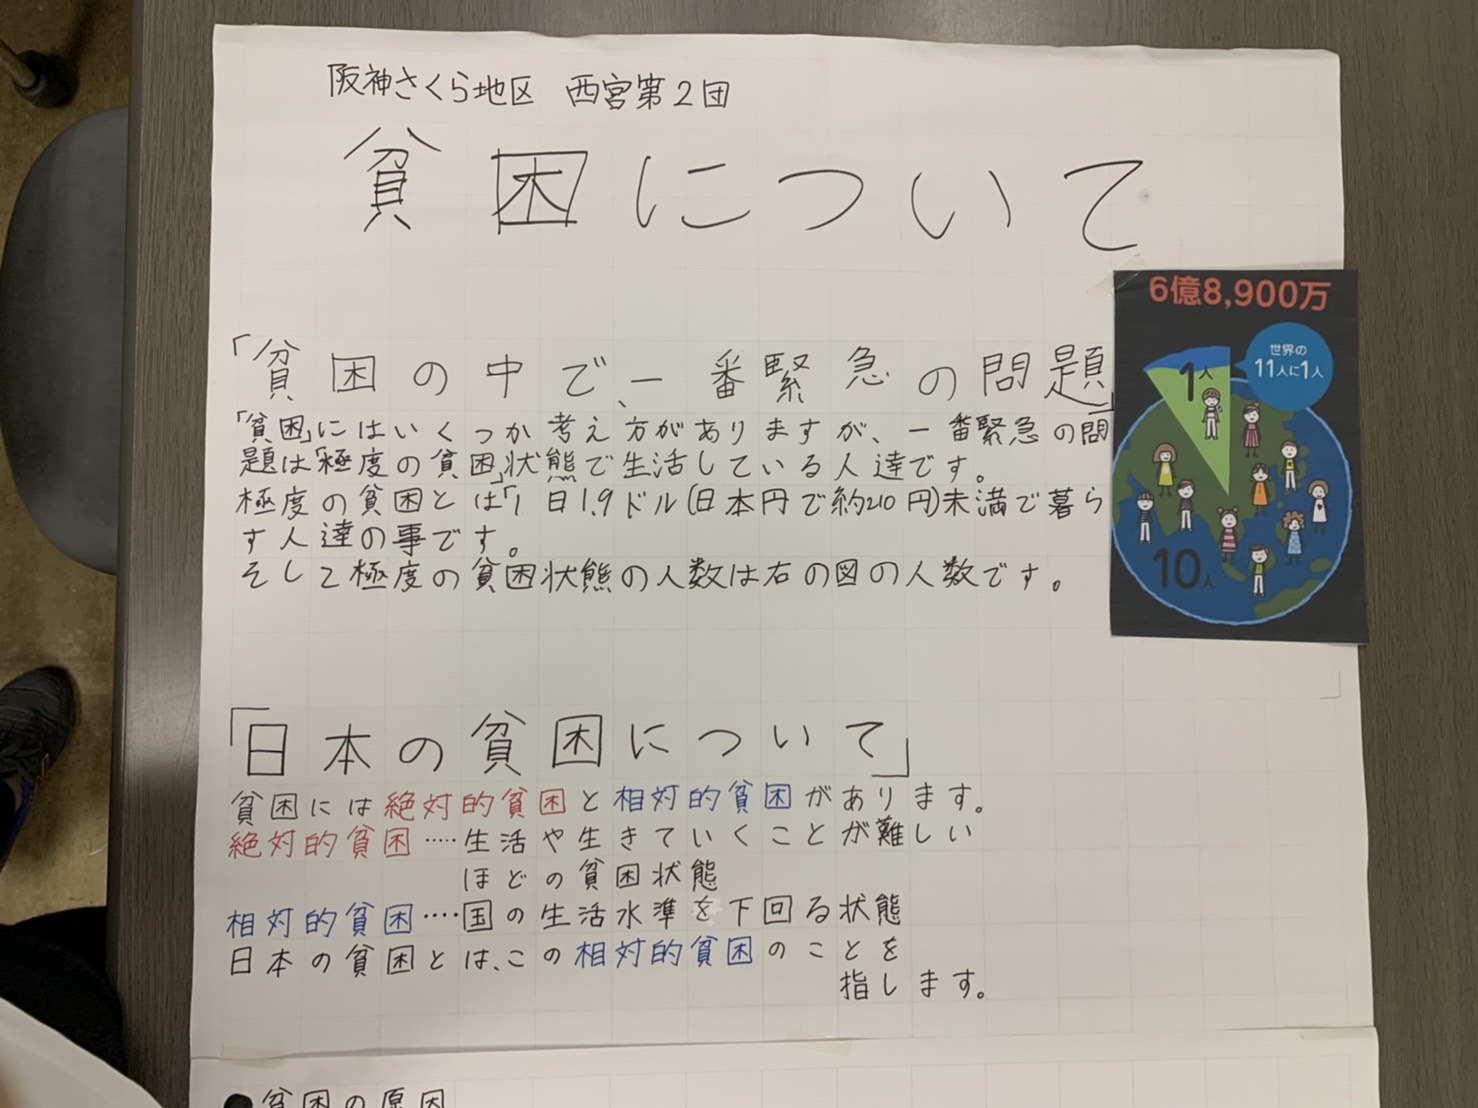 阪神さくら地区 西宮第2団
貧困について
「貧困の中で、一番緊急の問題」
「貧困」にはいくつか考え方がありますが、一番緊急の問
題は「極度の貧困」状態で生活している人達です。
極度の貧困とは「1日1.9ドル(日本円で約210円)未満で暮ら
す人達の事です。
そして極度の貧困状態の人数は右の図の人数です。
6億8,900万
世界の
11人に1人
1人
10人
「日本の貧困について」
貧困には絶対的貧困と相対的貧困があります。
絶対的貧困‥‥生活や生きていくことが難しい
ほどの貧困状態
相対的貧困‥‥国の生活水準を下回る状態
日本の貧困とは、この相対的貧困のことを
指します。
●貧困の原因